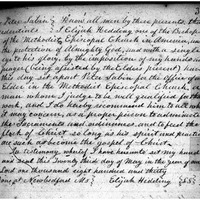 Peter Sabin } Know all men by these presents, that
Credentials } I Elijah Hedding one of the Bishops
of the Methodist Episcopal Church in America, under
the protection of Almighty God, and with a single
eye to his glory, by the imposition of my hands and
prayer (being assisted by the Elders present) have
this day set apart Peter Sabin for the office of an
Elder in the Methodist Episcopal Church, a
man whom I judge to be well qualified for that
work, and I do hereby recommend him to all whom
it may concern, as a proper person to administer
the Sacraments and ordinances, and to feed the
flock of Christ so long as his spirit and practice
are such as become the gospel of Christ.
In testimony, whereof I have hereunto set my hand
and seal this Twenty third day of May in the year of our
Lord one thousand eight hundred and thirty
one at New Bedford Ms } Elijah Hedding {LS}